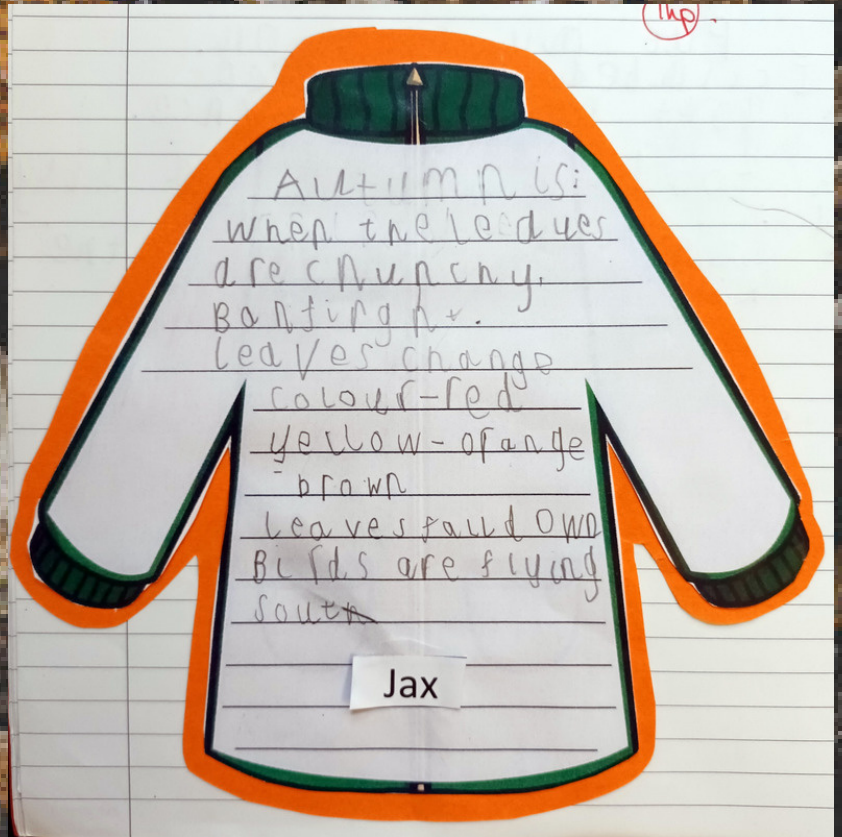 1hp.
Autumn is:
when the leaves
are chunchy.
Bonfirght.
leaves change
colour-red
yellow-orange
- brown
leaves fall down
Birds are flying
south
Jax